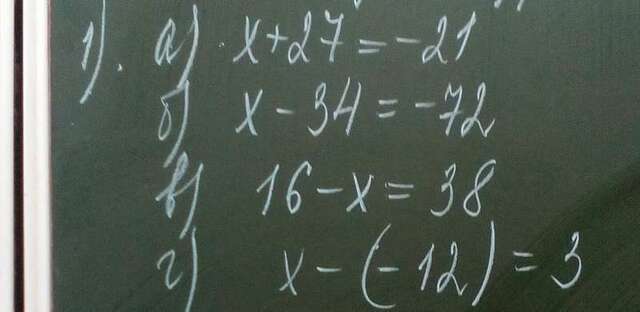 1). а) x+27=-21
б) x-34=-72
в) 16-x=38
г) x-(-12)=3